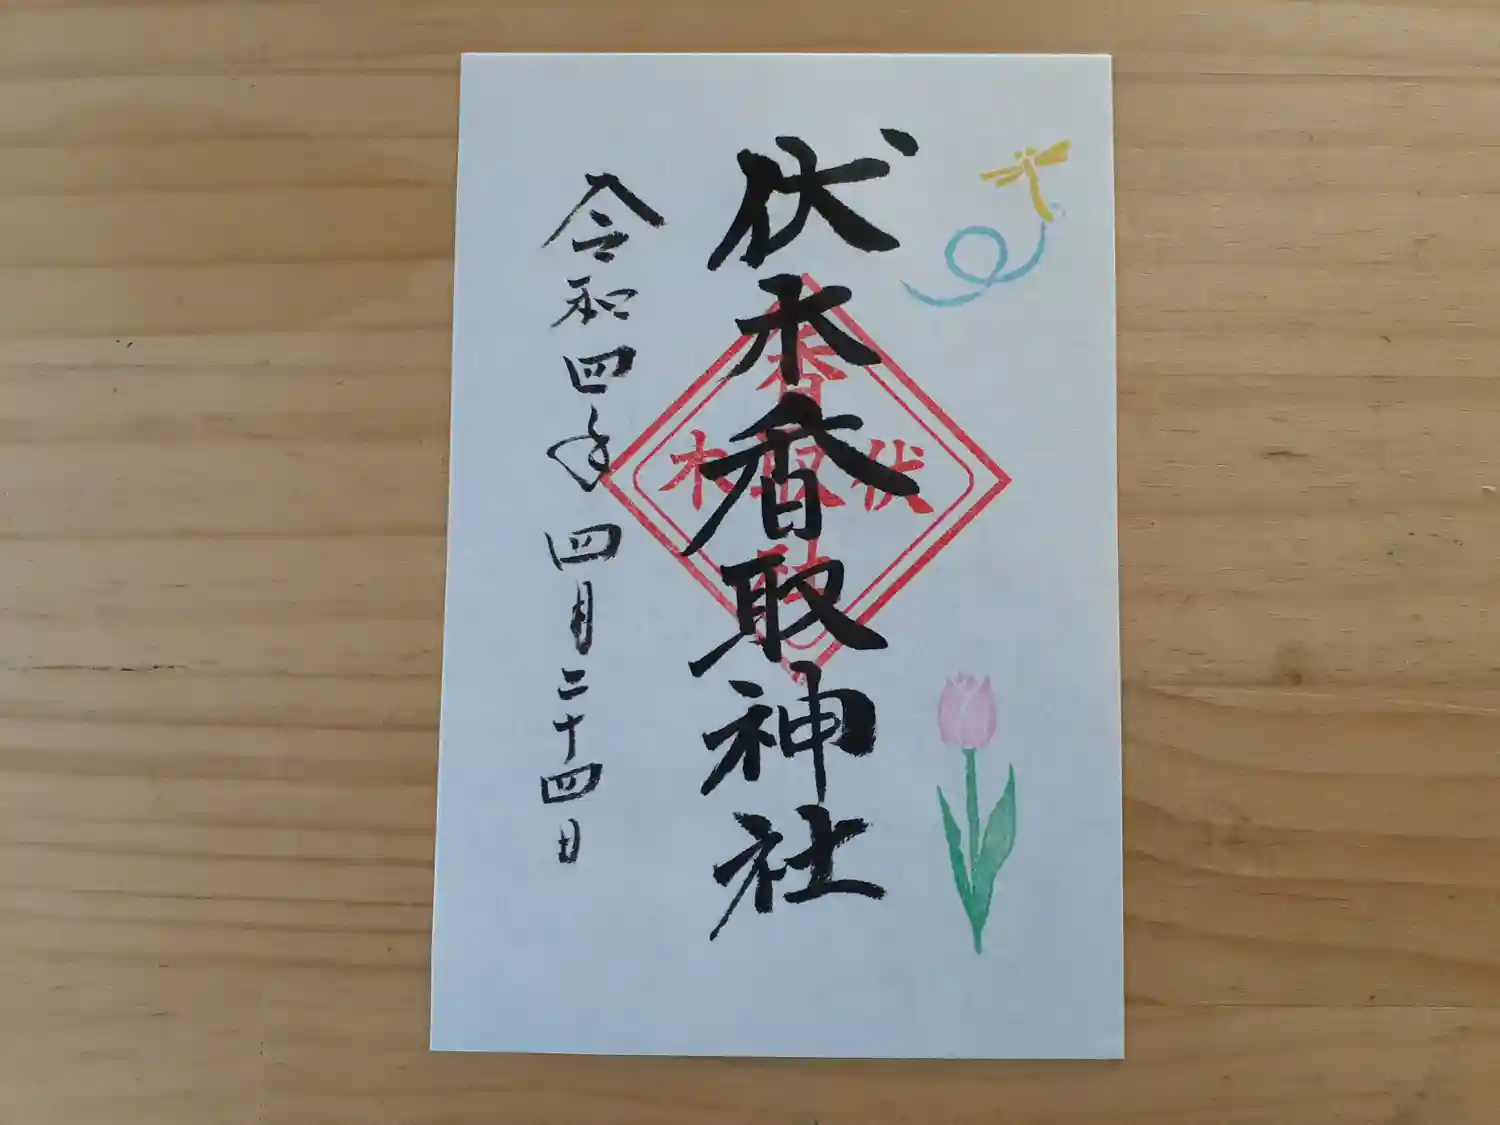 伏木香取神社
令和四年四月二十四日
香
伏取木
神